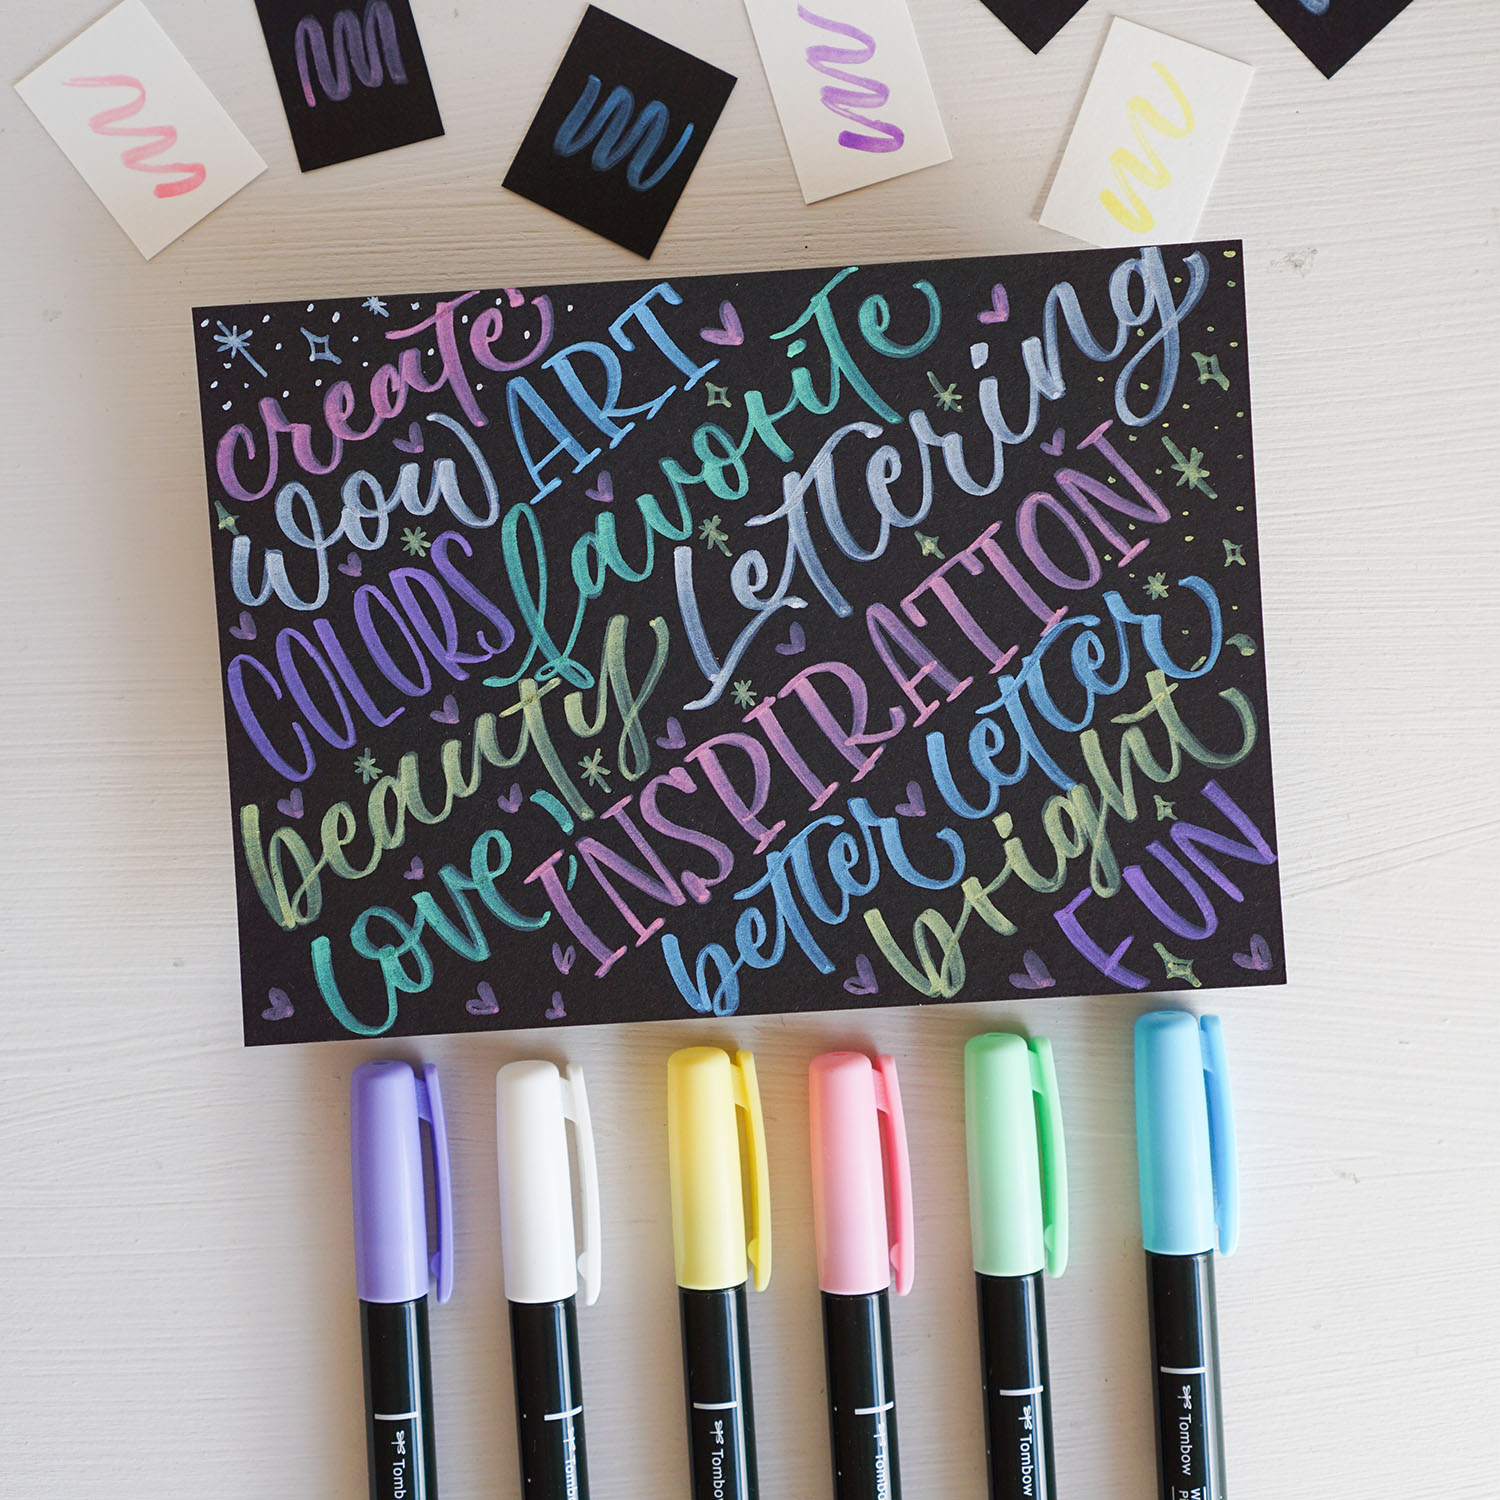 create
wow ART
COLORS favorite
beauty Lettering
love INSPIRATION
better letter
bright
FUN
Tomb
Tombow
Tombow
Tombow